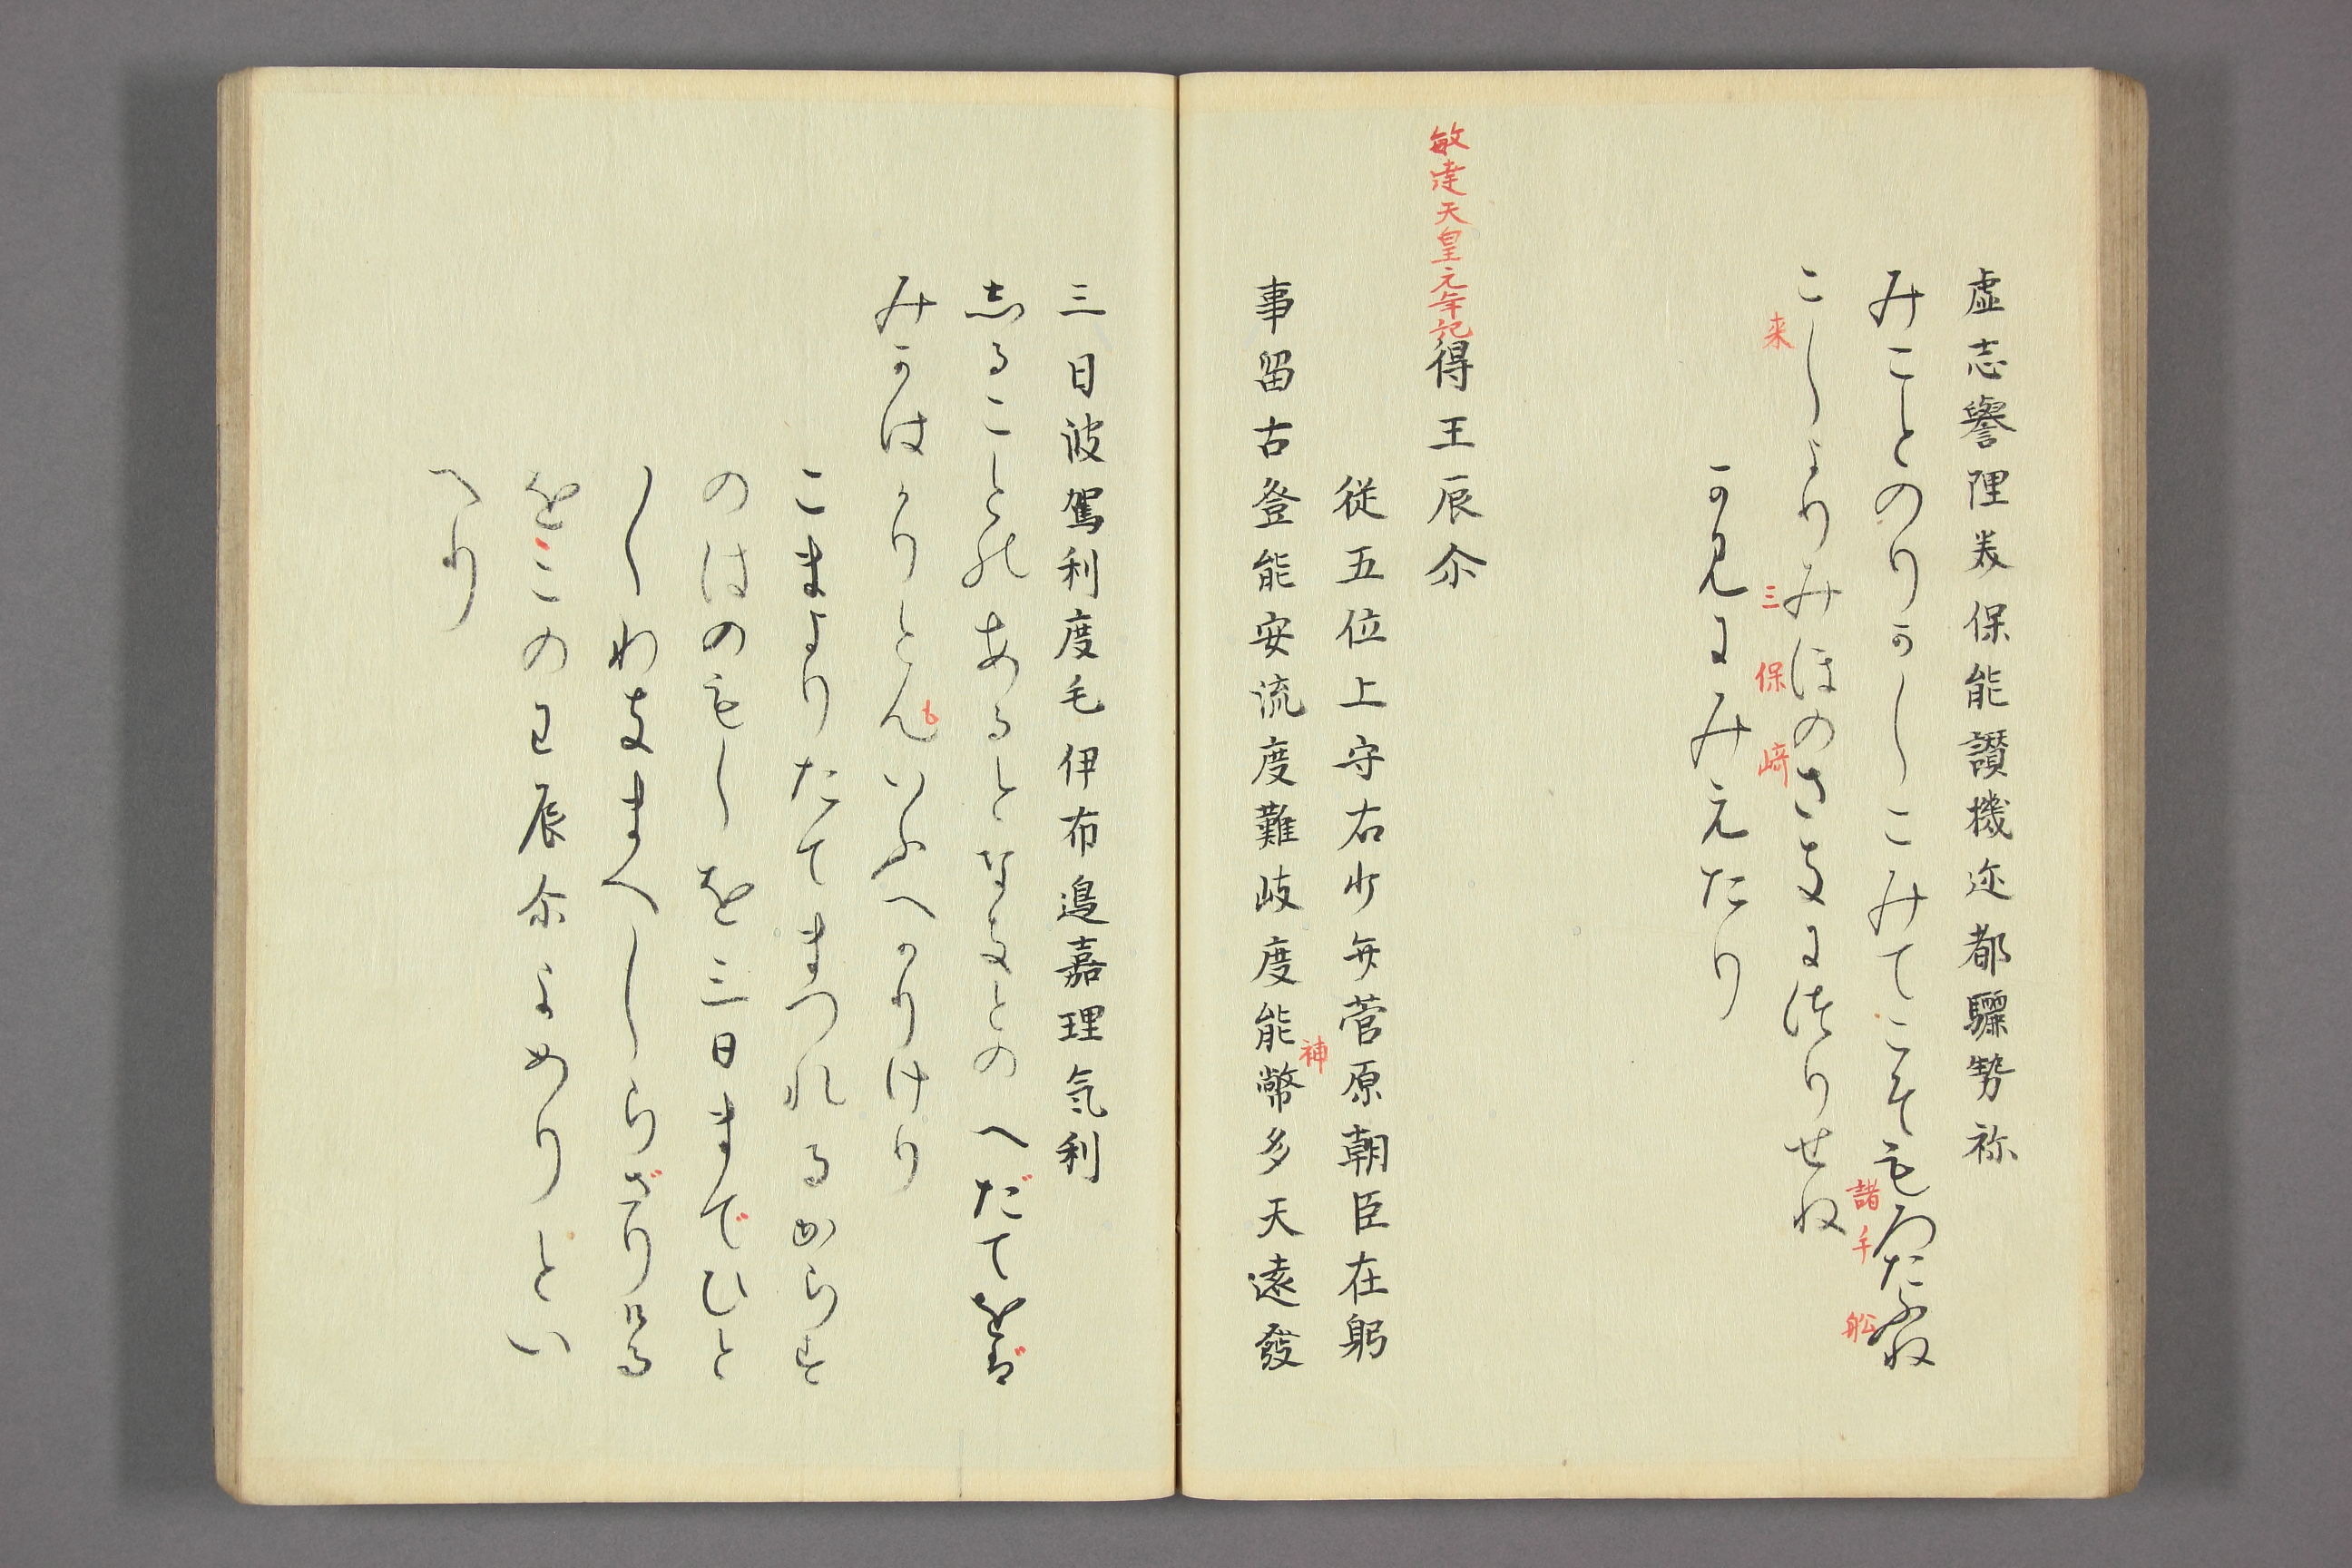 虚志譽陸美保能讃機迩都驪勢祢
みことのりかしこみてこそもろたふね
諸手舩
こしよりみほのさきにつりせね
来三保﨑
可見にみえたり
敏達天皇元年記
得王辰尒
従五位上守右少弁菅原朝臣在躬
事留古登能安流度難岐度能幣多天遠發
神
三日波駕利度毛伊布邉嘉理氣利
しることのあるとなきとのへだてをば
みかはかりとんいふへかりけり
も
こまよりたてまつれるからす
のはのもしを三日までひと
しわきまへしらざりける
をこの王辰尒よめりとい
へり